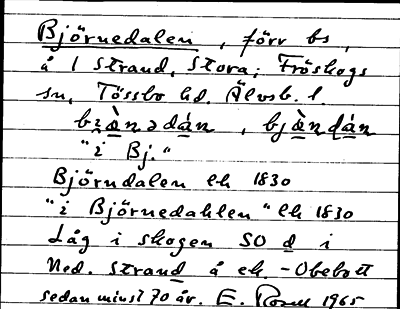 Björnedalen, förr bs,
å 1 Strand, Stora; Fröskogs
sn, Tössbo hd. Älvsb. l.
bjɷ̀nədán, bjɷ̀ndán
"i Bj."
Björndalen ek 1830
"i Björnedahlen" ek 1830
Låg i skogen SO d i
Ned. Strand å ek. - Obebott
sedan minst 70 år. E. Rosell 1965